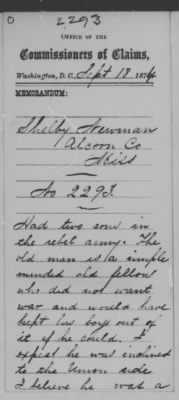 2293
OFFICE OF THE
Commissioners of Claims,
Washington, D.C., Sept 18 1874
MEMORANDUM:
Shelby Newman
Alcorn Co
Miss
No 2293.
Had two sons in
the rebel army. The
old man is a simple
minded old fellow
who did not want
war and would have
kept his boys out of
it if he could. I
expect he was inclined
to the Union side
I believe he was a